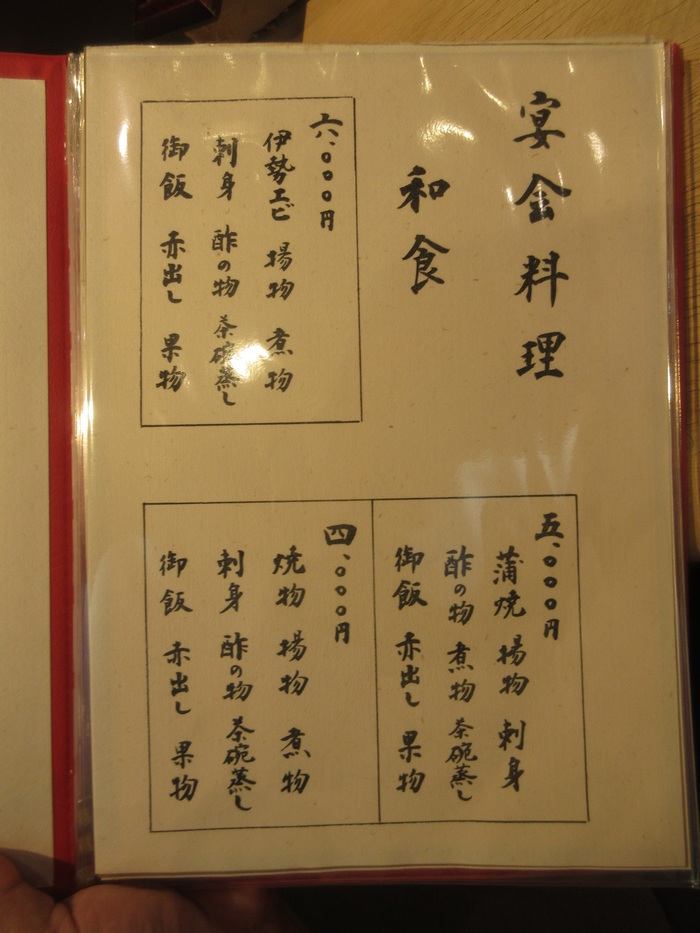 宴会料理
和食
六、〇〇〇円
伊勢エビ 揚物 煮物
刺身 酢の物 茶碗蒸し
御飯 赤出し 果物
五、〇〇〇円
蒲焼 揚物 刺身
酢の物 煮物 茶碗蒸し
御飯 赤出し 果物
四、〇〇〇円
焼物 揚物 煮物
刺身 酢の物 茶碗蒸し
御飯 赤出し 果物